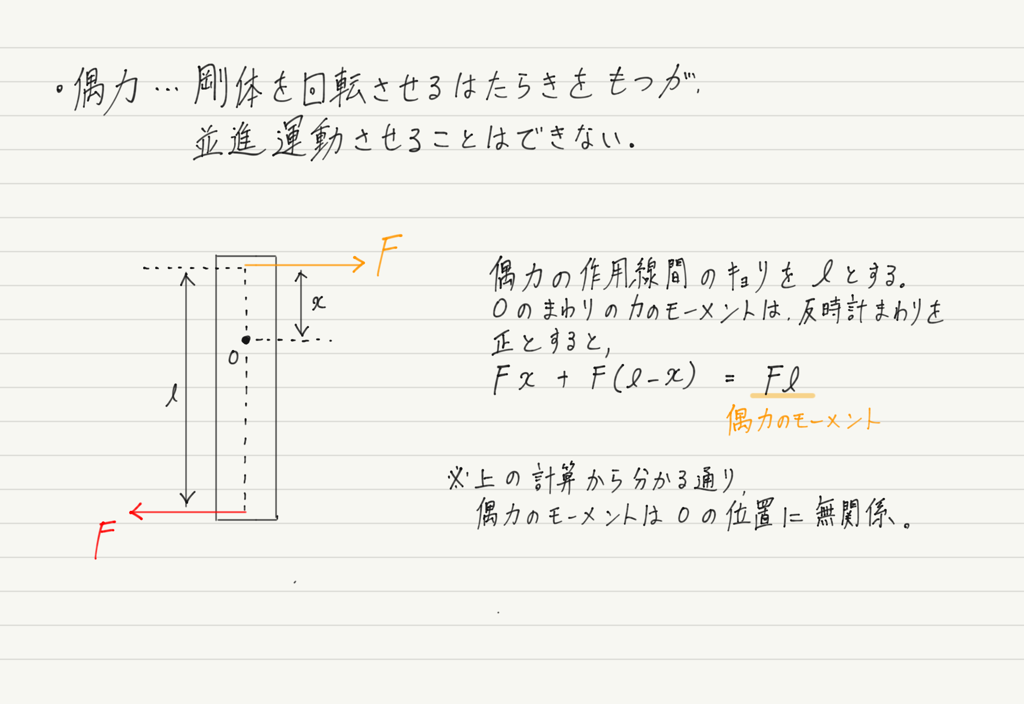 ・偶力…剛体を回転させるはたらきをもつが、
並進運動させることはできない。
F
x
O
l
F
偶力の作用線間のキョリをlとする。
Oのまわりの力のモーメントは、反時計まわりを
正とすると、
Fx + F(l-x) = Fl
偶力のモーメント
※上の計算から分かる通り、
偶力のモーメントはOの位置に無関係。